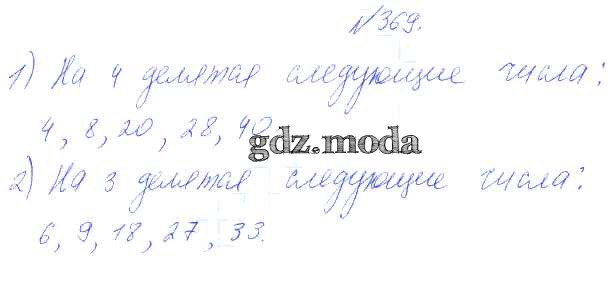 №369.
1) На 4 делятся следующие числа:
4, 8, 20, 28, 40
gdz.moda
2) На 3 делятся следующие числа:
6, 9, 18, 27, 33.